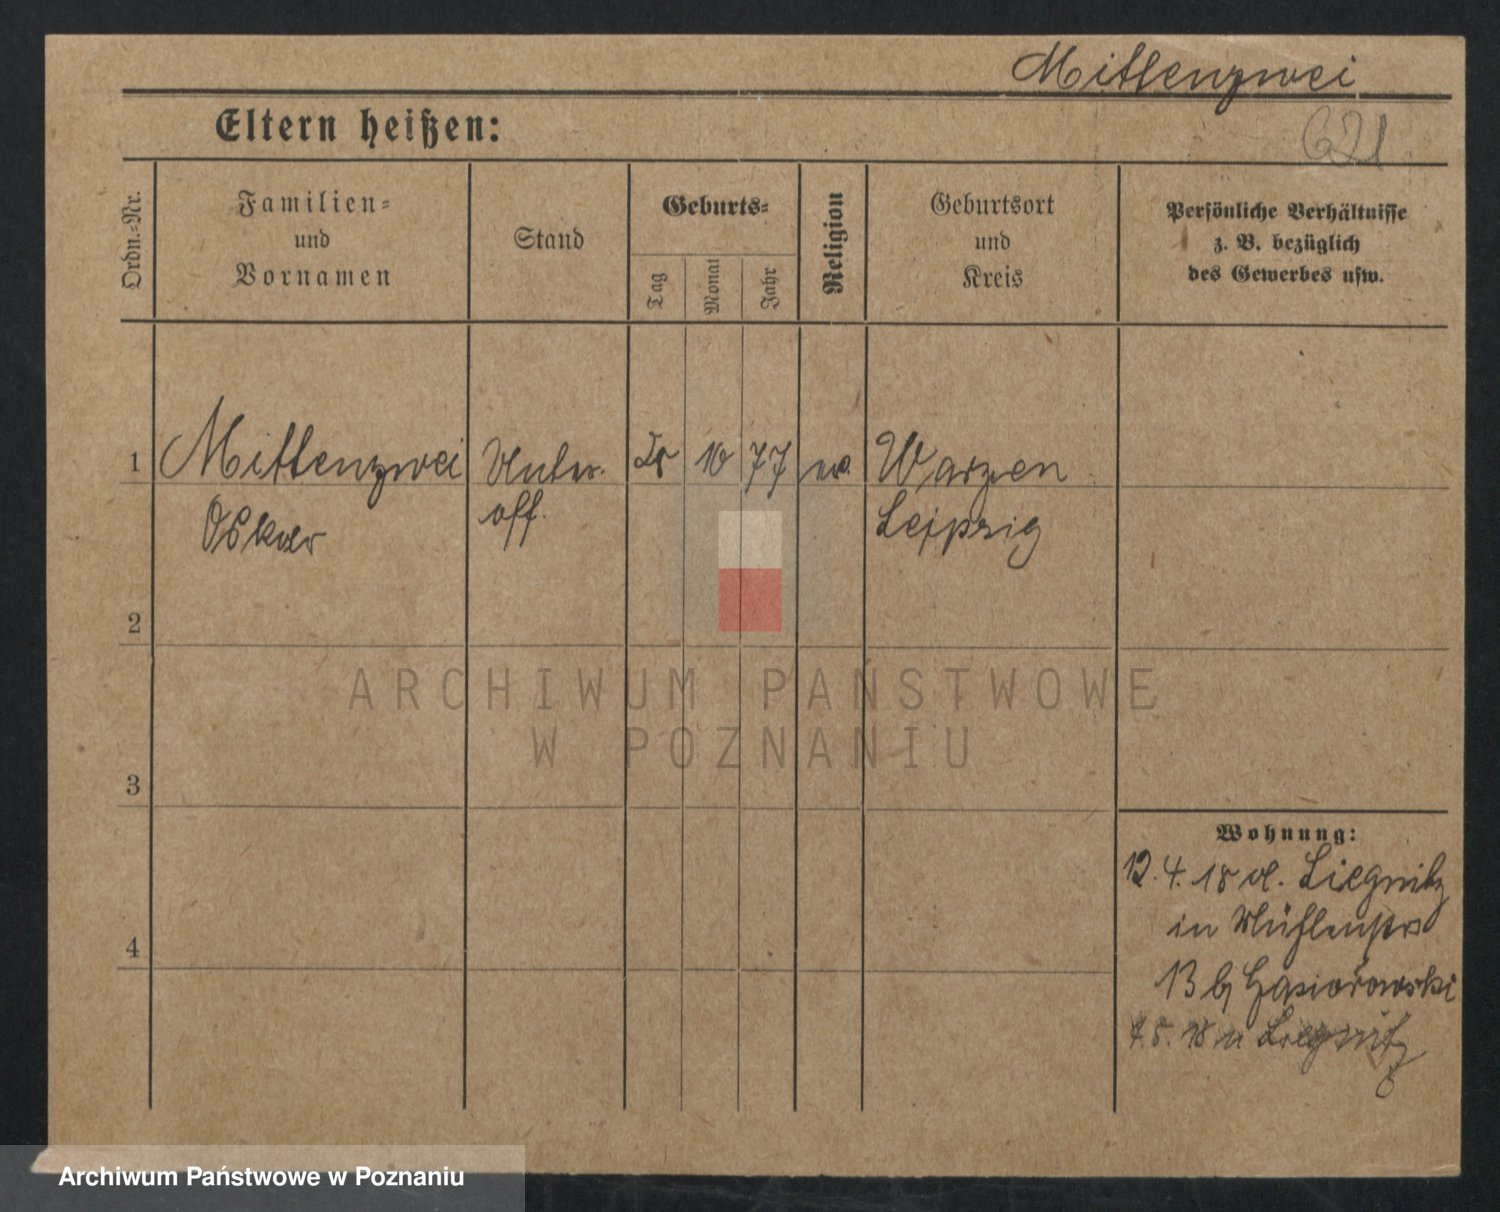 Mittenzwei
621
Eltern heißen:
Ordn.-Nr.
Familien-
und
Vornamen
Stand
Geburts-
Tag
Monat
Jahr
Religion
Geburtsort
und
Kreis
Persönliche Verhältnisse
z. B. bezüglich
des Gewerbes usw.
1 Mittenzwei Unter- 10 77 ev. Warzen
Oskar off. Leipzig
2
3
4
ARCHIWUM PAŃSTWOWE
W POZNANIU
Wohnung:
12.4.18 v. Liegnitz
in Mühlenstr
13 b/ Gasiorowski
7.5.18 n Liegnitz
Archiwum Państwowe w Poznaniu